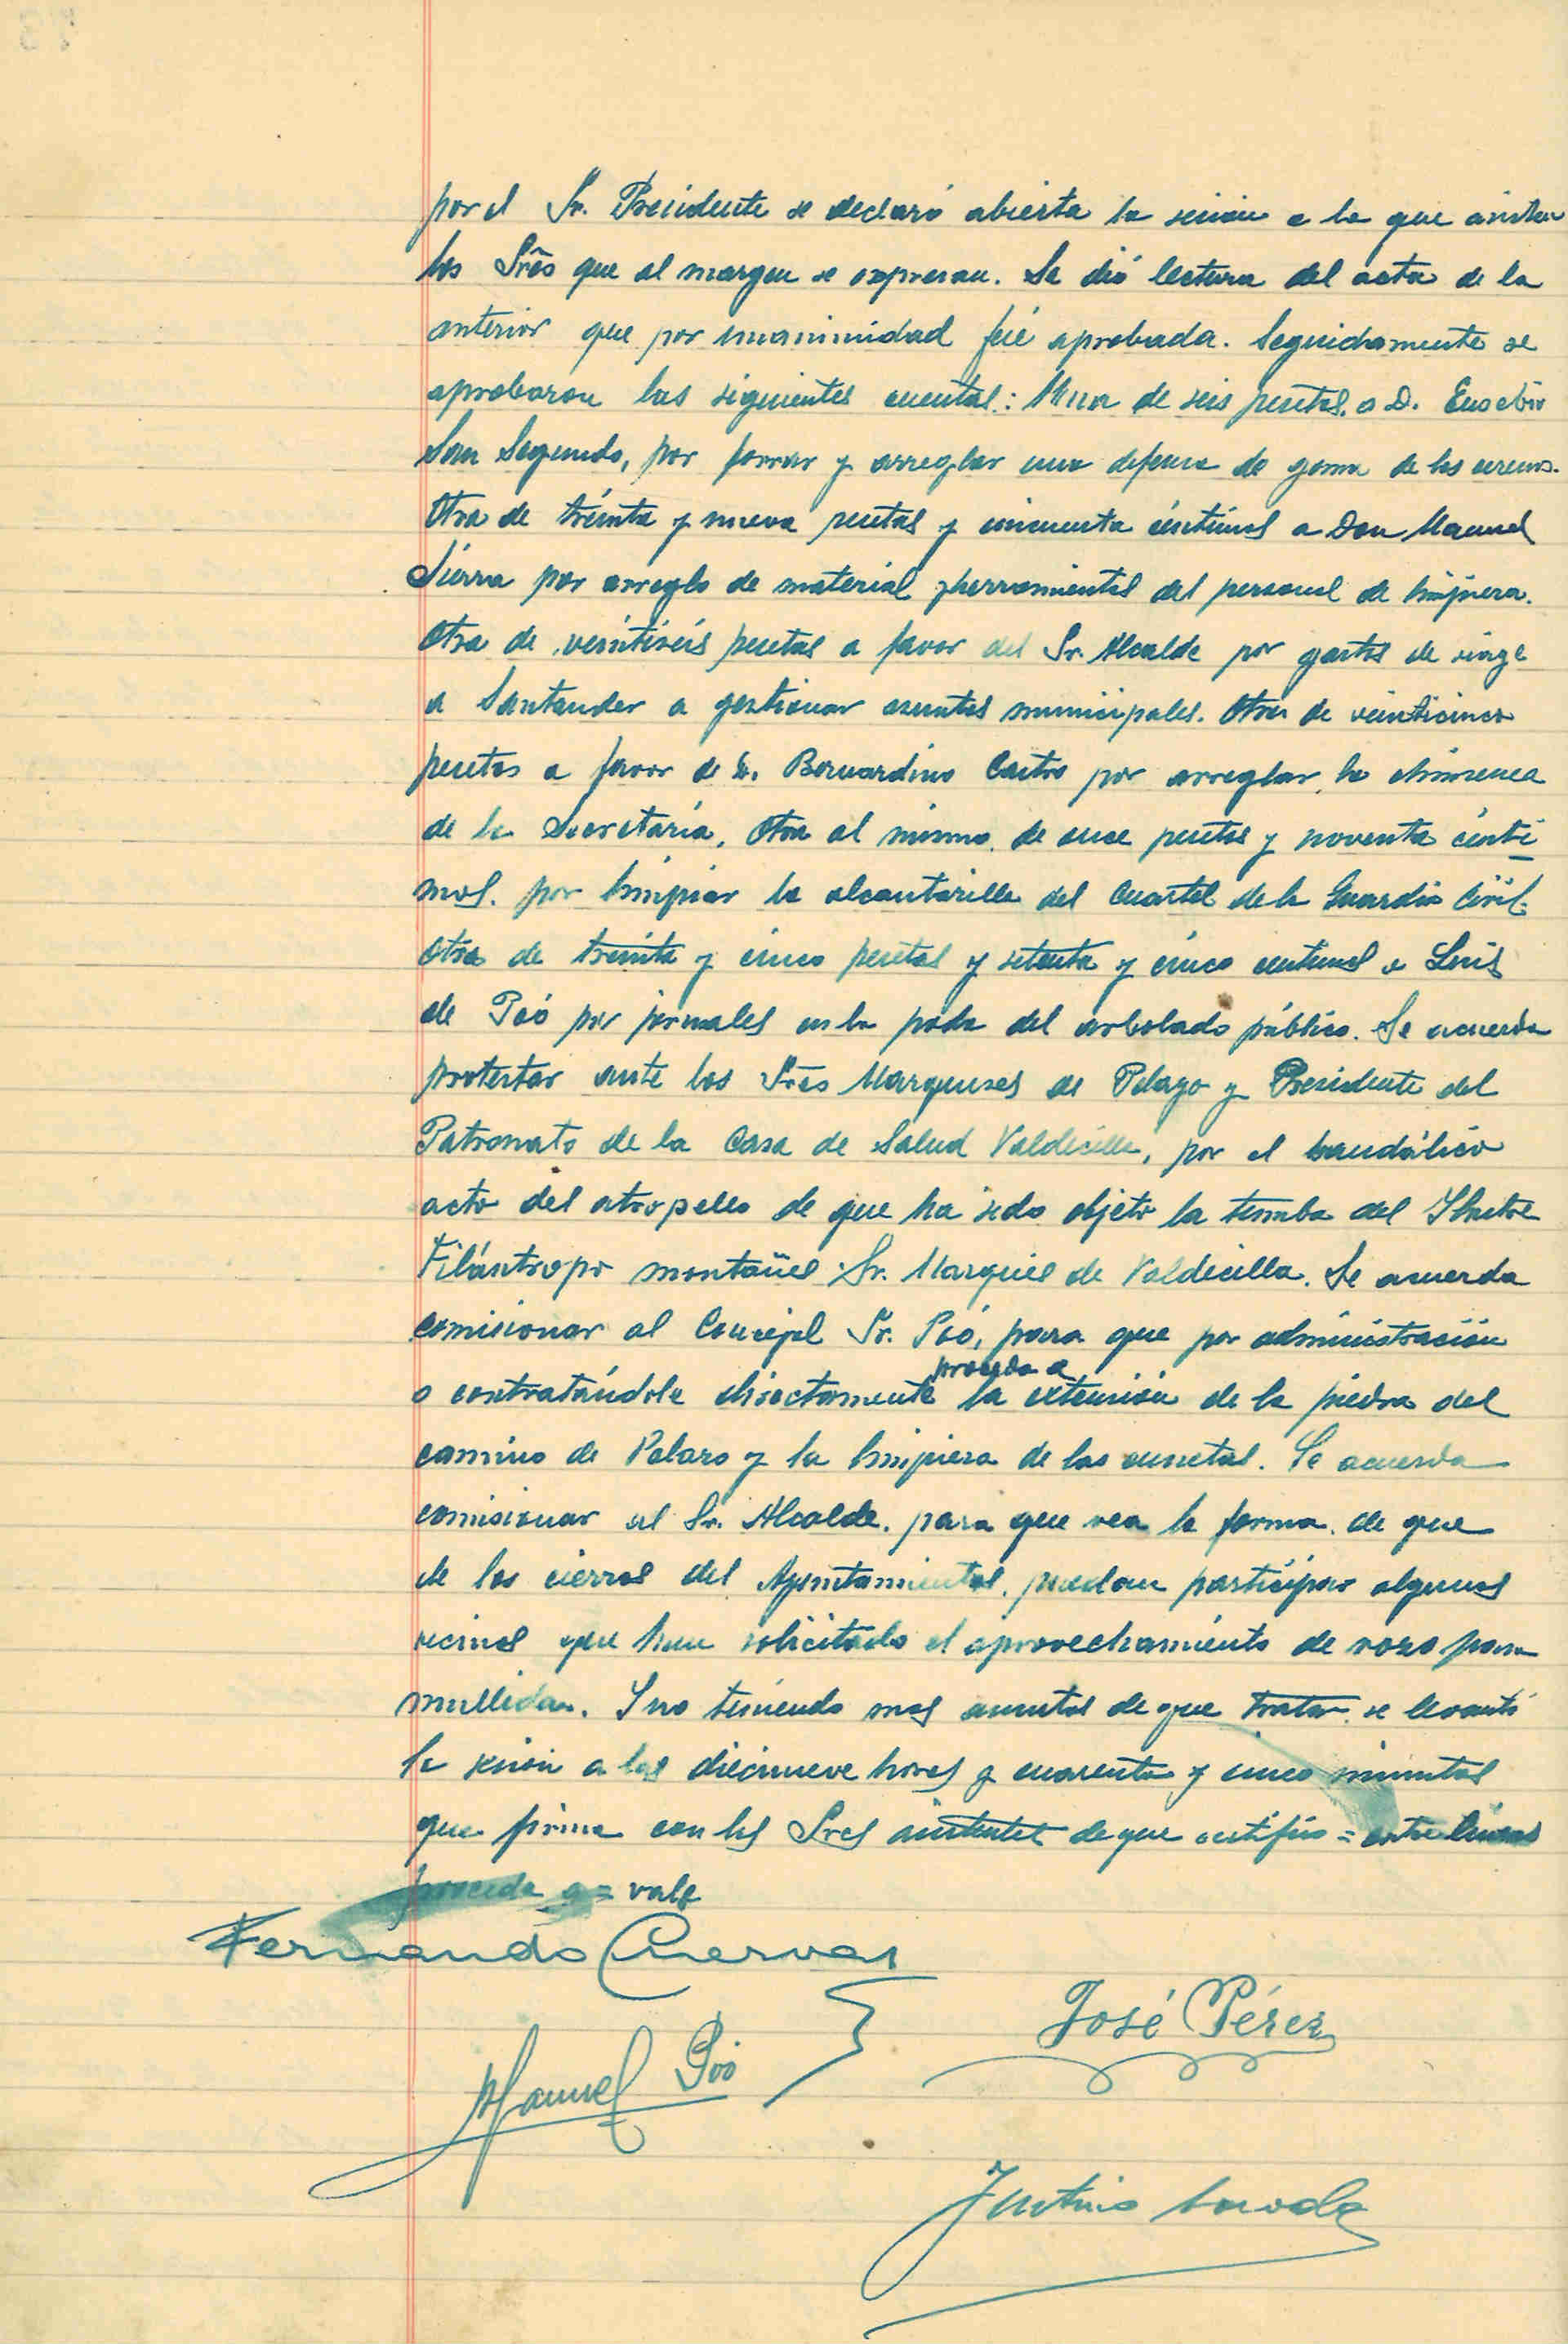 por el Sr. Presidente se declaró abierta la sesion a la que asisten
los Srēs que al margen se expresan. Se dió lectura del acta de la
anterior que por unanimidad fué aprobada. Seguidamente se
aprobaron las siguientes cuentas: Una de seis pesetas a D. Eusebio
San Segundo, por forrar y arreglar una defensa de goma de los
Otra de treinta y nueve pesetas y cincuenta céntimos a Don Manuel
Sierra por arreglo de material y herramientas del personal de limpieza.
Otra de veintiseis pesetas a favor del Sr. Alcalde por gastos de viage
a Santander a gestionar asuntos municipales. Otra de veinticinco
pesetas a favor de D. Bernardino Castro por arreglar la chimenea
de la Secretaría. Otra al mismo de once pesetas y noventa cénti
mos. por limpiar la alcantarilla del Cuartel de la Guardia Civil.
Otra de treinta y cinco pesetas y setenta y cinco centimos a Luis
de Poó por jornales en la poda del arbolado público. Se acuerda
protestar ante los Srēs Marqueses de Pelayo y Presidente del
Patronato de la Casa de Salud Valdecilla, por el bandálico
acto del atropello de que ha sido objeto la tumba del Ilustre
Filántropo montañes Sr. Marques de Valdecilla. Se acuerda
comisionar al Concejal Sr. Poó, para que por administración
proceda a
o contratándole directamente la extensión de la piedra del
camino de Polaro y la limpieza de las cunetas. Se acuerda
comisionar al Sr. Alcalde. para que vea la forma. de que
de los cierros del Ayuntamientos, puedan participar algunos
vecinos que han solicitado el aprovechamiento de rozo para
mullidas. Y no teniendo mas asuntos de que tratar se levantó
la sesion a las diecinueve horas y cuarenta y cinco minutos
que firma con los Sres asistentes de que certifico = entre lineas
proceda a = vale
Fernando Cuervas
José Pérez
Manuel Poó
Justino